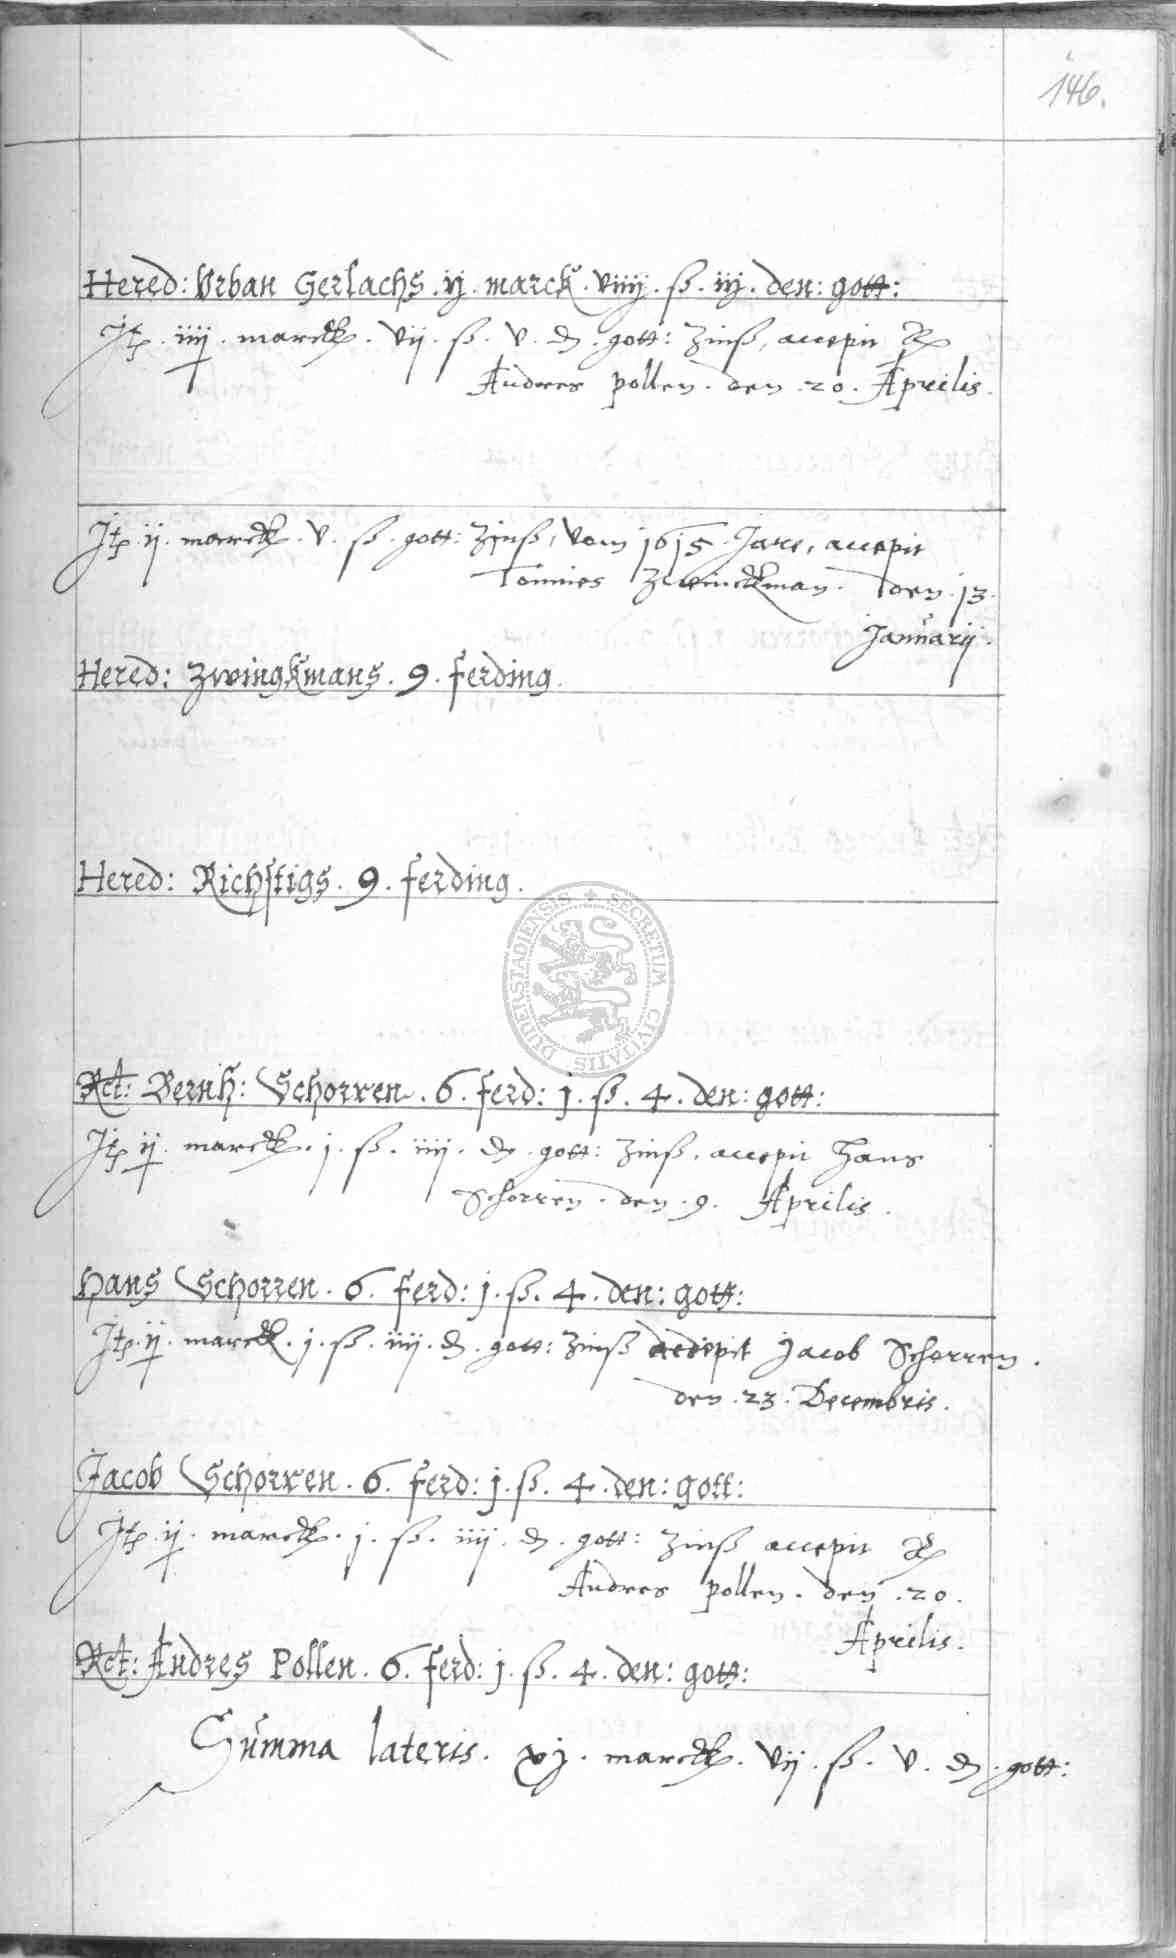 146.
Hered: Vrban Gerlachs . ij . marck . viiij . ß . iij . den: gott:
Itp . iiij . marck . vij . ß . v . d . gott: Zinß, accepit R
Andres pollen . den . 20 . Aprilis .
Itp . ij . marck . v . ß . gott: Zinß, vom 1615 Jare, accepit
Tönnies Zwinckman . den . 13 .
Januarij .
Hered: Zwingkmans . 9 . ferding .
Hered: Richstigs . 9 . ferding .
DUDERSTADIENSIS + SECRETUM CIVITATIS
Rct: Bernh: Schorren . 6 . ferd: j . ß . 4 . den: gott:
Itp ij . marck . j . ß . iiij . d . gott: Zinß . accepit Hans
Schorren . den . 9 . Aprilis .
Hans Schorren . 6 . ferd: j . ß . 4 . den: gott:
Itp . ij . marck . j . ß . iiij . d . gott: Zinß accepit Jacob Schorren .
den . 23 . Decembris .
Jacob Schorren . 6 . ferd: j . ß . 4 . den: gott:
Itp . ij . marck . j . ß . iiij . d . gott: Zinß accepit R
Andres pollen . den . 20 .
Aprilis .
Rct: Andres Pollen . 6 . ferd: j . ß . 4 . den: gott:
Summa lateris . xj . marck . vij . ß . v . d . gott: